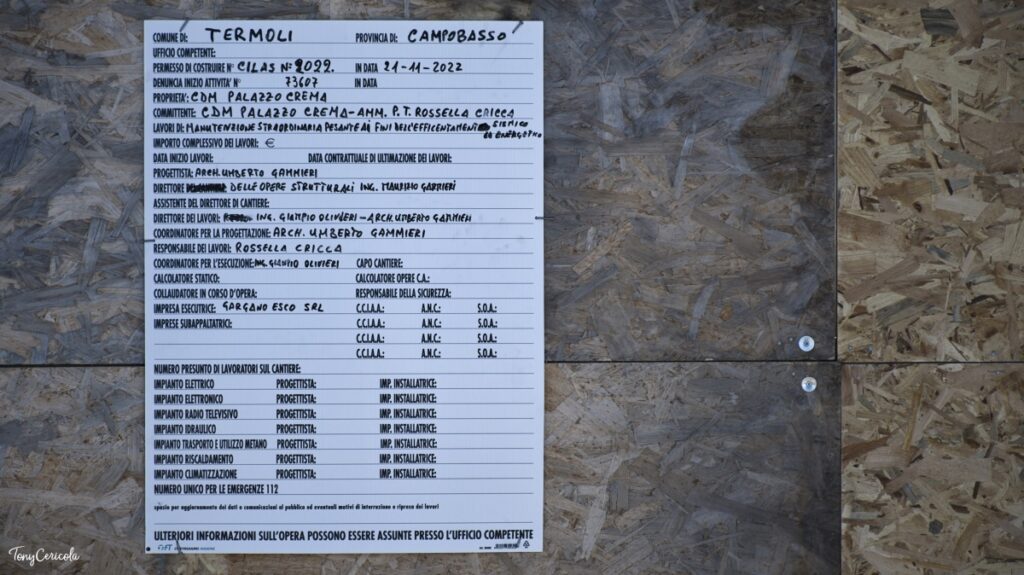 COMUNE DI: TERMOLI PROVINCIA DI: CAMPOBASSO
UFFICIO COMPETENTE:
PERMESSO DI COSTRUIRE N° CILAS N° 2022. IN DATA 21-11-2022
DENUNCIA INIZIO ATTIVITA' N° 73607 IN DATA
PROPRIETA': CDM PALAZZO CREMA
COMMITTENTE: CDM PALAZZO CREMA-AMM. P.T. ROSSELLA CRICCA
LAVORI DI: MANUTENZIONE STRAORDINARIA PESANTE AI FINI DELL'EFFICENTAMENTO SISMICO
ED ENERGETICO
IMPORTO COMPLESSIVO DEI LAVORI: €
DATA INIZIO LAVORI: DATA CONTRATTUALE DI ULTIMAZIONE DEI LAVORI:
PROGETTISTA: ARCH. UMBERTO GAMMIERI
DIRETTORE DELLE OPERE STRUTTURALI ING. MAURIZIO
ASSISTENTE DEL DIRETTORE DI CANTIERE:
DIRETTORE DEI LAVORI: ING. GIAMPIO OLIVIERI - ARCH. UMBERTO GAMMIERI
COORDINATORE PER LA PROGETTAZIONE: ARCH. UMBERTO GAMMIERI
RESPONSABILE DEI LAVORI: ROSSELLA CRICCA
COORDINATORE PER L'ESECUZIONE: ING. GIAMPIO OLIVIERI CAPO CANTIERE:
CALCOLATORE STATICO: CALCOLATORE OPERE C.A.:
COLLAUDATORE IN CORSO D'OPERA: RESPONSABILE DELLA SICUREZZA:
IMPRESA ESECUTRICE: GARGANO ESCO SRL C.C.I.A.A.: A.N.C.: S.O.A.:
IMPRESE SUBAPPALTATRICI: C.C.I.A.A.: A.N.C.: S.O.A.:
C.C.I.A.A.: A.N.C.: S.O.A.:
C.C.I.A.A.: A.N.C.: S.O.A.:
NUMERO PRESUNTO DI LAVORATORI SUL CANTIERE:
IMPIANTO ELETTRICO PROGETTISTA: IMP. INSTALLATRICE:
IMPIANTO ELETTRONICO PROGETTISTA: IMP. INSTALLATRICE:
IMPIANTO RADIO TELEVISIVO PROGETTISTA: IMP. INSTALLATRICE:
IMPIANTO IDRAULICO PROGETTISTA: IMP. INSTALLATRICE:
IMPIANTO TRASPORTO E UTILIZZO METANO PROGETTISTA: IMP. INSTALLATRICE:
IMPIANTO RISCALDAMENTO PROGETTISTA: IMP. INSTALLATRICE:
IMPIANTO CLIMATIZZAZIONE PROGETTISTA: IMP. INSTALLATRICE:
NUMERO UNICO PER LE EMERGENZE 112
spazio per aggiornamento dei dati o comunicazioni al pubblico ed eventuali motivi di interruzione e ripresa dei lavori
ULTERIORI INFORMAZIONI SULL'OPERA POSSONO ESSERE ASSUNTE PRESSO L'UFFICIO COMPETENTE
TonyCericola